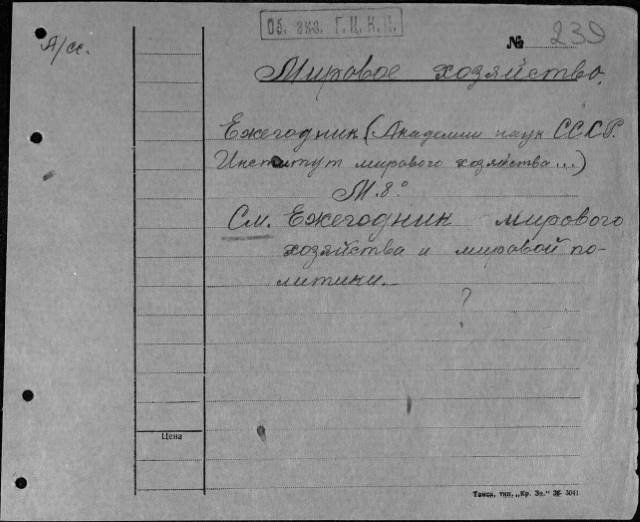 Об. экз. Г.Ц.К.П.
№ 239
А/сс.
Мировое хозяйство.
Ежегодник (Академии наук СССР.
Институт мирового хозяйства...)
М. 8°
См. Ежегодник мирового
хозяйства и мировой по-
литики.
?
Цена